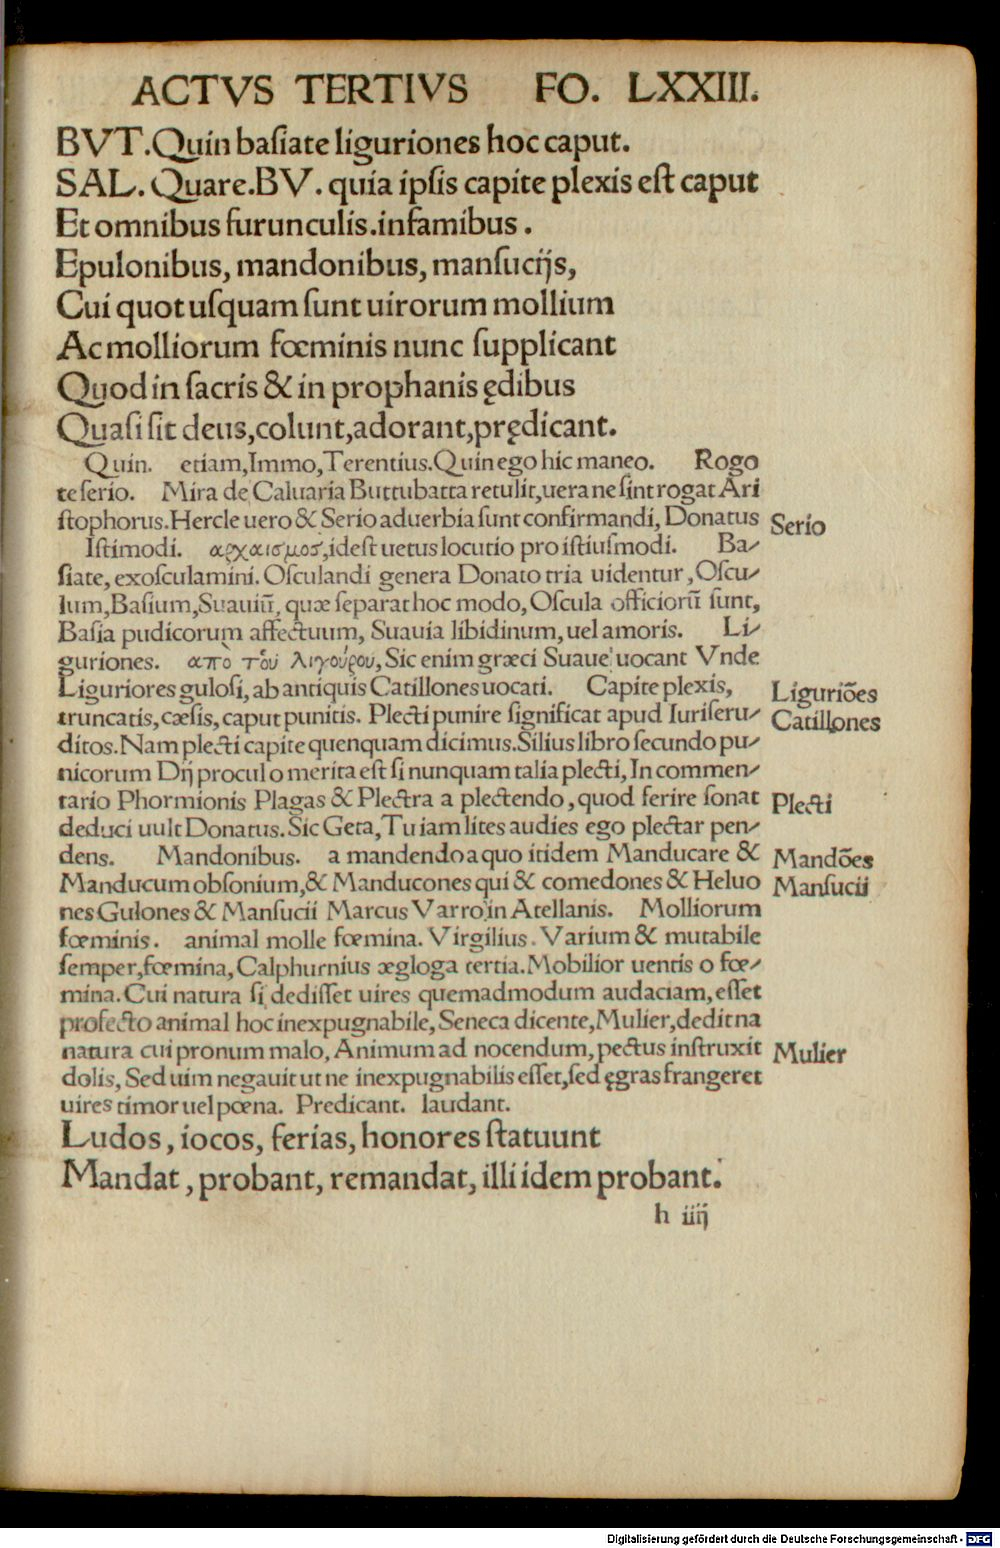 ACTVS TERTIVS FO. LXXIII.
BVT. Quin basiate liguriones hoc caput.
SAL. Quare. BV. quia ipsis capite plexis est caput
Et omnibus furunculis.infamibus.
Epulonibus, mandonibus, mansucijs,
Cui quot usquam sunt uirorum mollium
Ac molliorum fœminis nunc supplicant
Quod in sacris & in prophanis ędibus
Quasi sit deus, colunt, adorant, prędicant.
Quin. etiam, Immo, Terentius. Quin ego hic maneo. Rogo
te serio. Mira de Caluaria Buttubatta retulit, uera ne sint rogat Ari
stophorus. Hercle uero & Serio aduerbia sunt confirmandi, Donatus
Serio
Istimodi. αρχαισμος, idest uetus locutio pro istiusmodi. Ba-
siate, exosculamini. Osculandi genera Donato tria uidentur, Oscu-
lum, Basium, Suauiũ, quæ separat hoc modo, Oscula officiorũ sunt,
Basia pudicorum affectuum, Suauia libidinum, uel amoris. Li-
guriones. απὸ τοὺ λιγούρου, Sic enim græci Suaue uocant Vnde
Liguriores gulosi, ab antiquis Catillones uocati. Capite plexis,
Liguriões
truncatis, cæsis, caput punitis. Plecti punire significat apud Iurisferu-
Catillones
ditos. Nam plecti capite quenquam dicimus. Silius libro secundo pu-
nicorum Dij procul o merita est si nunquam talia plecti, In commen-
tario Phormionis Plagas & Plectra a plectendo, quod ferire sonat
Plecti
deduci uult Donatus. Sic Geta, Tu iam lites audies ego plectar pen-
dens. Mandonibus. a mandendo a quo itidem Manducare &
Mandões
Manducum obsonium, & Manducones qui & comedones & Heluo
Mansucii
nes Gulones & Mansucii Marcus Varro in Atellanis. Molliorum
fœminis. animal molle fœmina. Virgilius. Varium & mutabile
semper, fœmina, Calphurnius ægloga tertia. Mobilior uentis o fœ-
mina. Cui natura si dedisset uires quemadmodum audaciam, esset
profecto animal hoc inexpugnabile, Seneca dicente, Mulier, dedit na
natura cui pronum malo, Animum ad nocendum, pectus instruxit
Mulier
dolis, Sed uim negauit ut ne inexpugnabilis esset, sed ęgras frangeret
uires timor uel pœna. Predicant. laudant.
Ludos, iocos, ferias, honores statuunt
Mandat, probant, remandat, illi idem probant.
h iiij
Digitalisierung gefördert durch die Deutsche Forschungsgemeinschaft - DFG